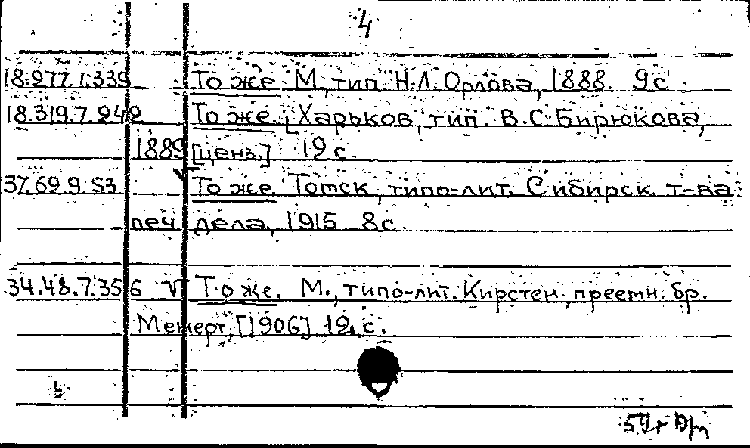 4
18.277.1.339 То же М., тип. Н.Л. Орлова, 1888. 9 с.
18.319.7.242 То же. [Харьков, тип. В.С. Бирюкова,
1889 [ценз.] 19 с.
37.69.9.53 V То же. Томск, типо-лит. Сибирск. т-ва
печ. дела, 1915 8 с.
34.48.7.356 V То же. М., типо-лит. Кирстен. преемн. бр.
Менерт, [1906] 19 с.